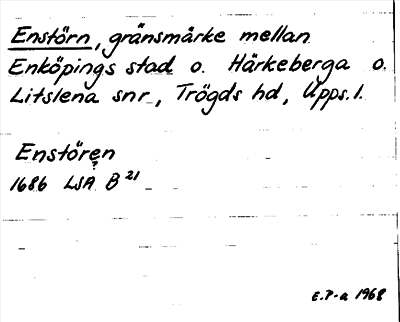 Enstörn, gränsmärke mellan
Enköpings stad o. Härkeberga o.
Litslena snr, Trögds hd, Upps. l.
Enstören
?
1686 LSA B²¹
E.P-a 1968